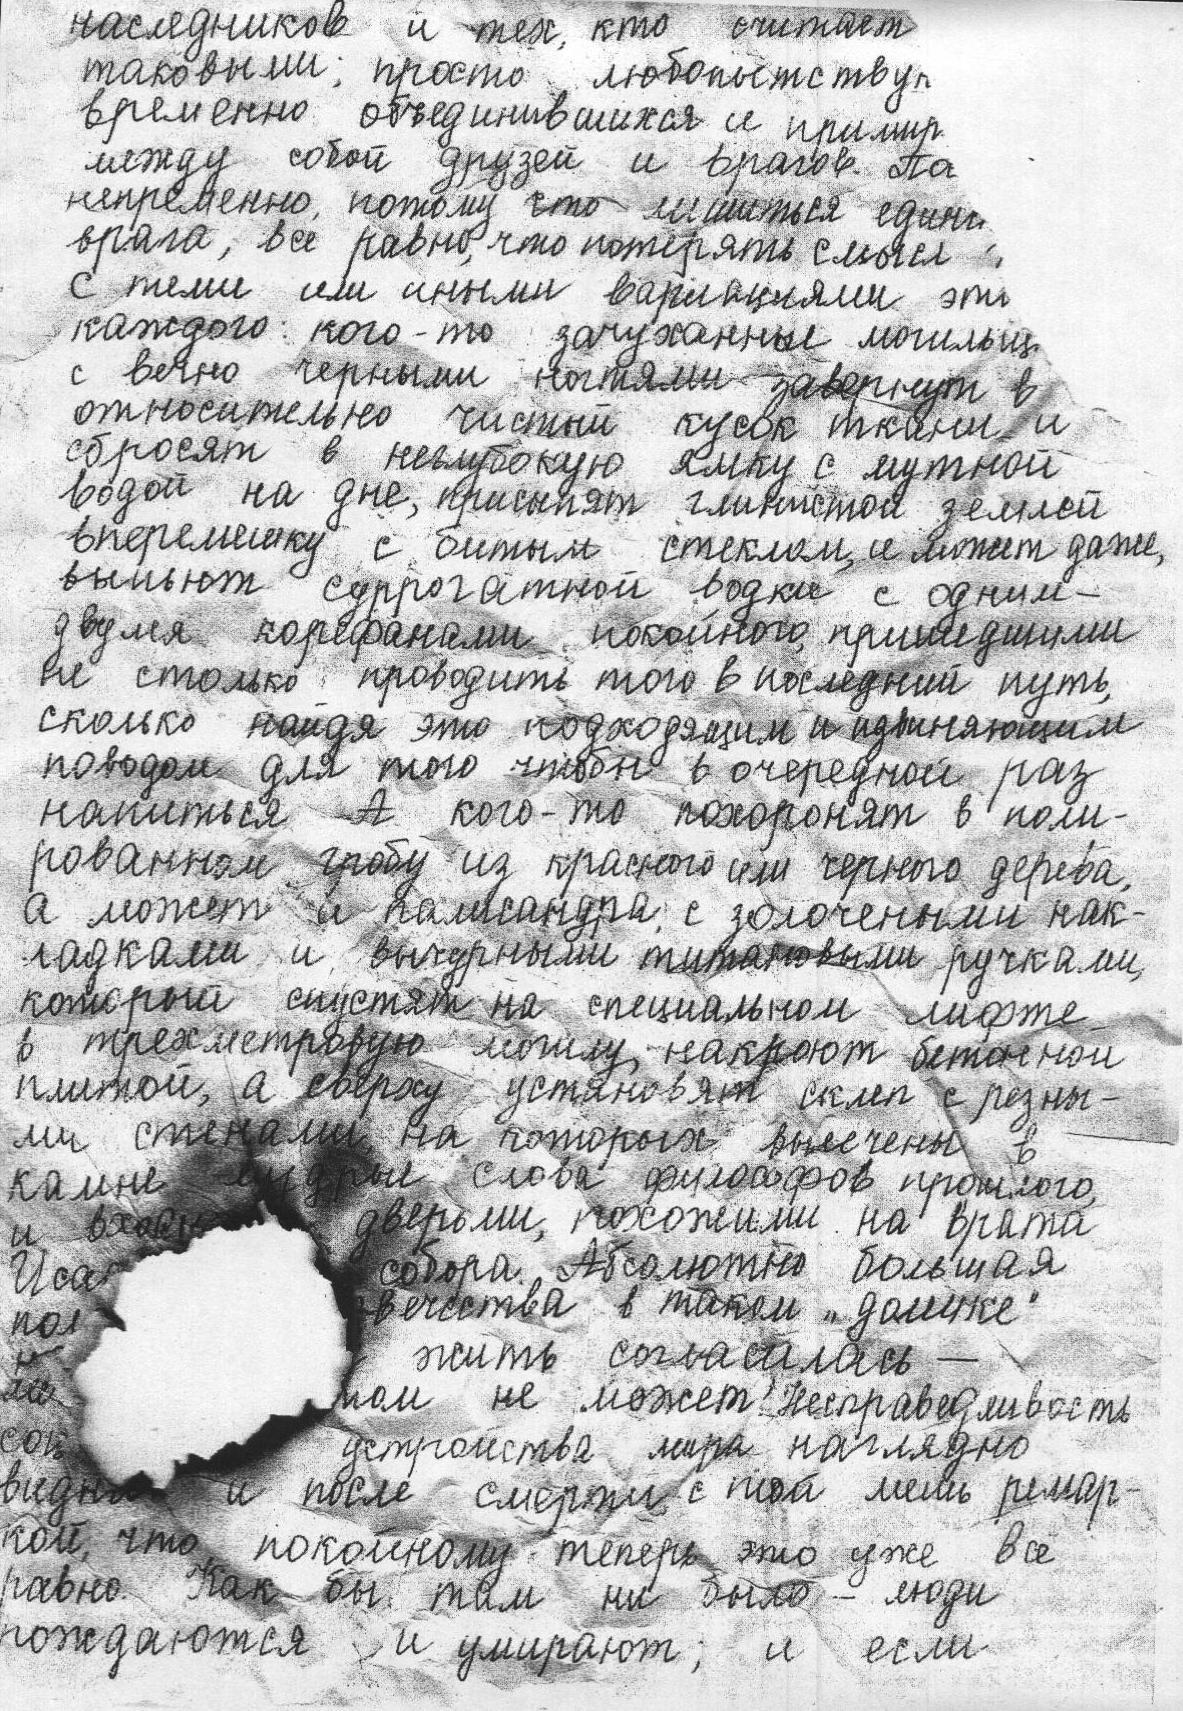 наследников и тех, кто считает
таковыми; просто любопытствую
временно объединившихся и примир
между собой друзей и врагов. Па
непременно, потому что лишиться един
врага, все равно, что потерять смысл
С теми или иными вариациями эт
каждого: кого-то зачуханные могильщ
с вечно черными ногтями завернут в
относительно чистый кусок ткани и
сбросят в неглубокую ямку с мутной
водой на дне, присыпят глинистой землей
вперемешку с битым стеклом, и может даже,
выпьют суррогатной водки с одним-
двумя корефанами покойного, пришедшими
не столько проводить того в последний путь,
сколько найдя это подходящим и извиняющим
поводом для того чтобы в очередной раз
напиться. А кого-то похоронят в поли-
рованном гробу из красного или черного дерева,
а может и палисандра, с золочеными нак-
ладками и вычурными титановыми ручками,
который спустят на специальном лифте
в трехметровую могилу, накроют бетонной
плитой, а сверху установят склеп с резны-
ми стенами, на которых высечены в
камне мудрые слова философов прошлого,
и вход дверьми, похожими на врата
Иса собора. Абсолютно большая
пол вечества в таком „домике"
жить согласилась —
том не может! Несправедливость
соц устройства мира наглядно
видна и после смерти, с той лишь ремар-
кой, что покойному теперь это уже все
равно. Как бы там ни было – люди
рождаются и умирают, и если